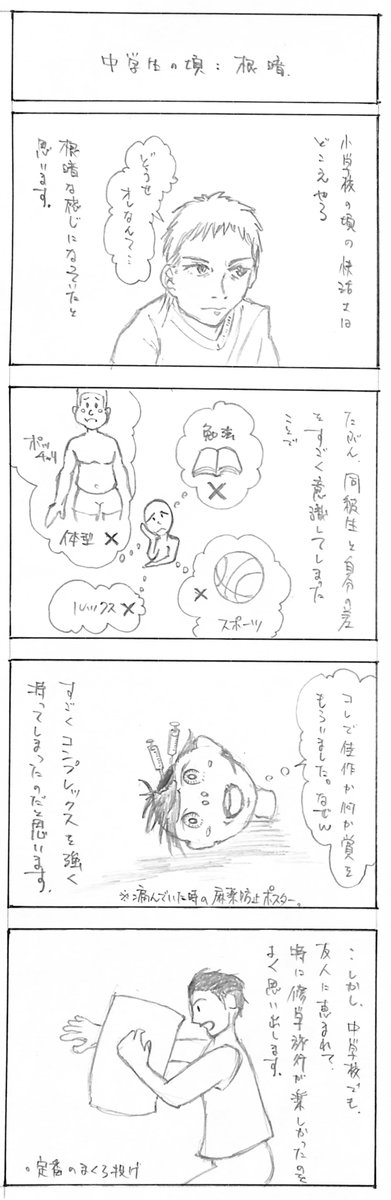 中学生の頃：根暗
小学校の頃の快活さは
どこえやら
どうせ
オレなんて…
根暗な感じになっていたと
思います。
たぶん、同級生と自分の差
をすごく意識してしまった
ことで
勉強
ポッチャリ
体型
ルックス
スポーツ
コレで佳作か何か賞を
もらいました。なぜw
すごくコンプレックスを強く
持ってしまったのだと思います。
※：病んでいた時の麻薬防止ポスター。
しかし、中学校でも、
友人に恵まれて、
特に修学旅行が楽しかったのを
よく思い出します。
○定番のまくら投げ